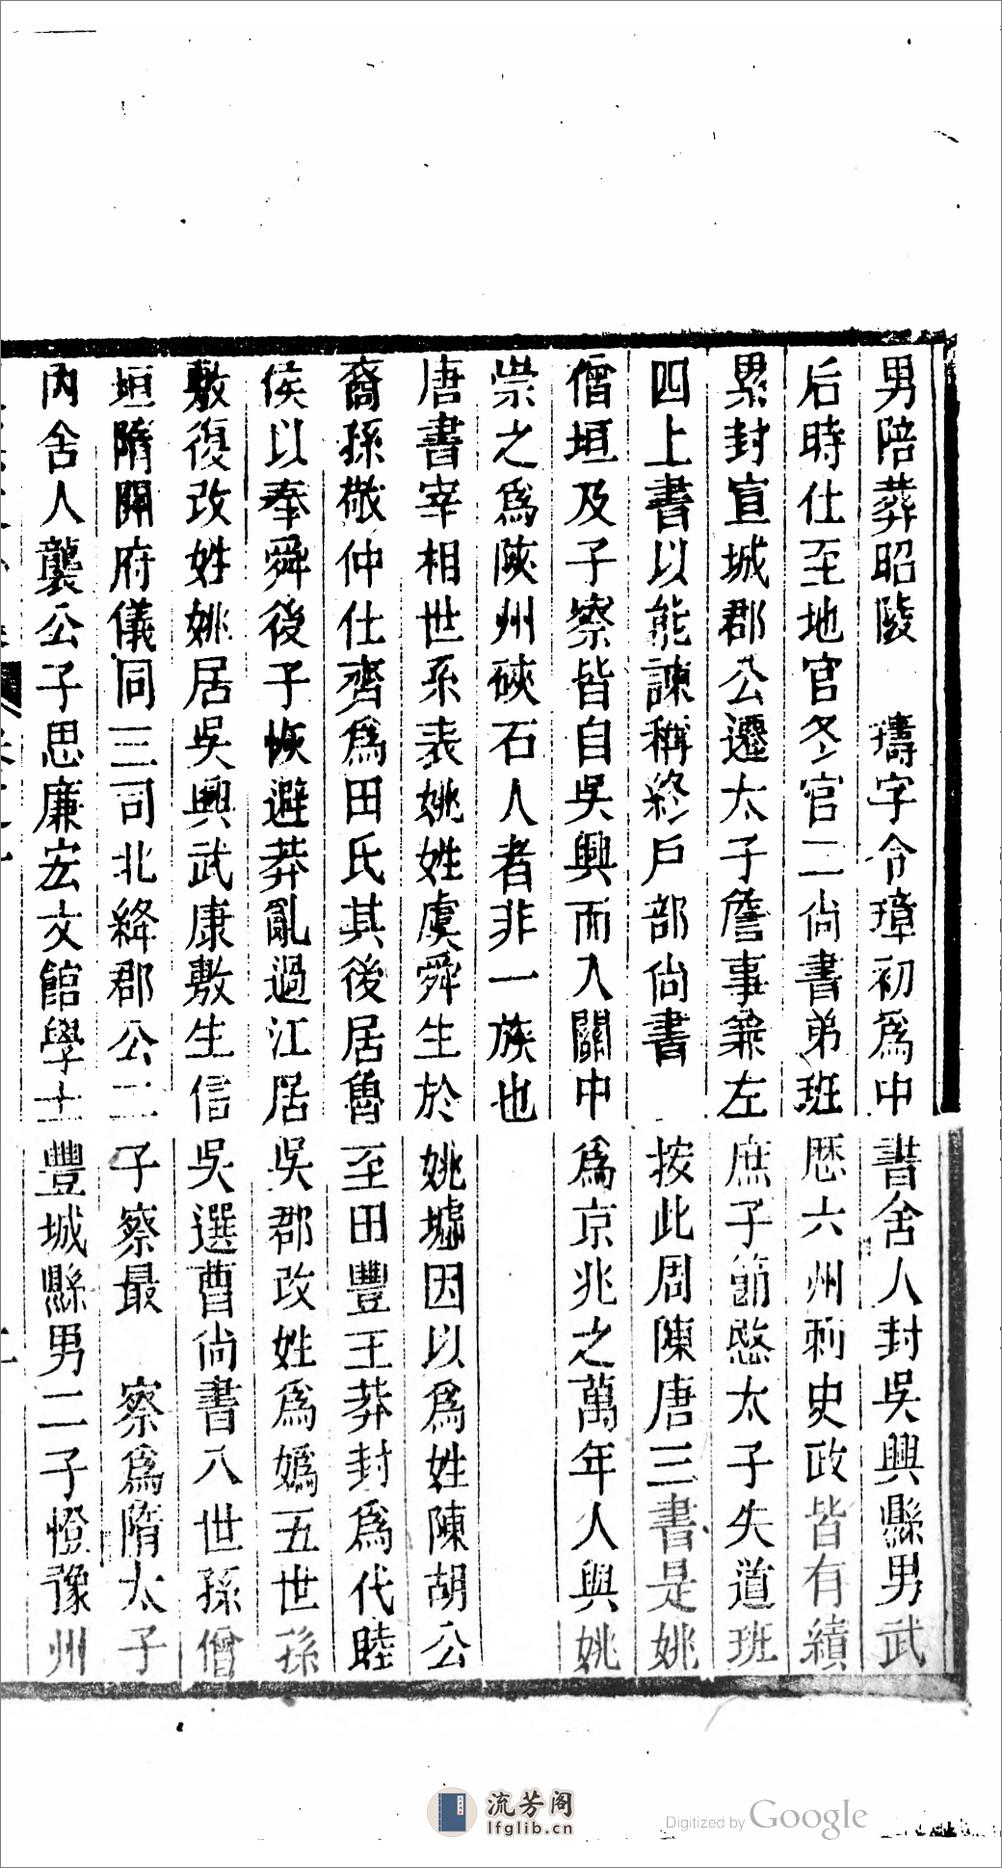 男陪葬昭陵　璹字令璋初爲中書舍人封吳興縣男武
后時仕至地官冬官二尚書弟班歷六州刺史政皆有績
累封宣城郡公遷太子詹事兼左庶子節愍太子失道班
四上書以能諫稱終戶部尚書　按此周陳唐三書是姚
僧垣及子察皆自吳興而入關中爲京兆之萬年人與姚
崇之爲陝州硤石人者非一族也
唐書宰相世系表姚姓虞舜生於姚墟因以爲姓陳胡公
裔孫敬仲仕齊爲田氏其後居魯至田豐王莽封爲代睦
侯以奉舜後子恢避莽亂過江居吳郡改姓爲嬀五世孫
敷復改姓姚居吳興武康敷生信吳選曹尚書八世孫僧
垣隋開府儀同三司北絳郡公二子察最　察爲隋太子
內舍人襲公子思廉宏文館學士豐城縣男二子憕豫州
流芳阁
lfglib.cn
Digitized by Google